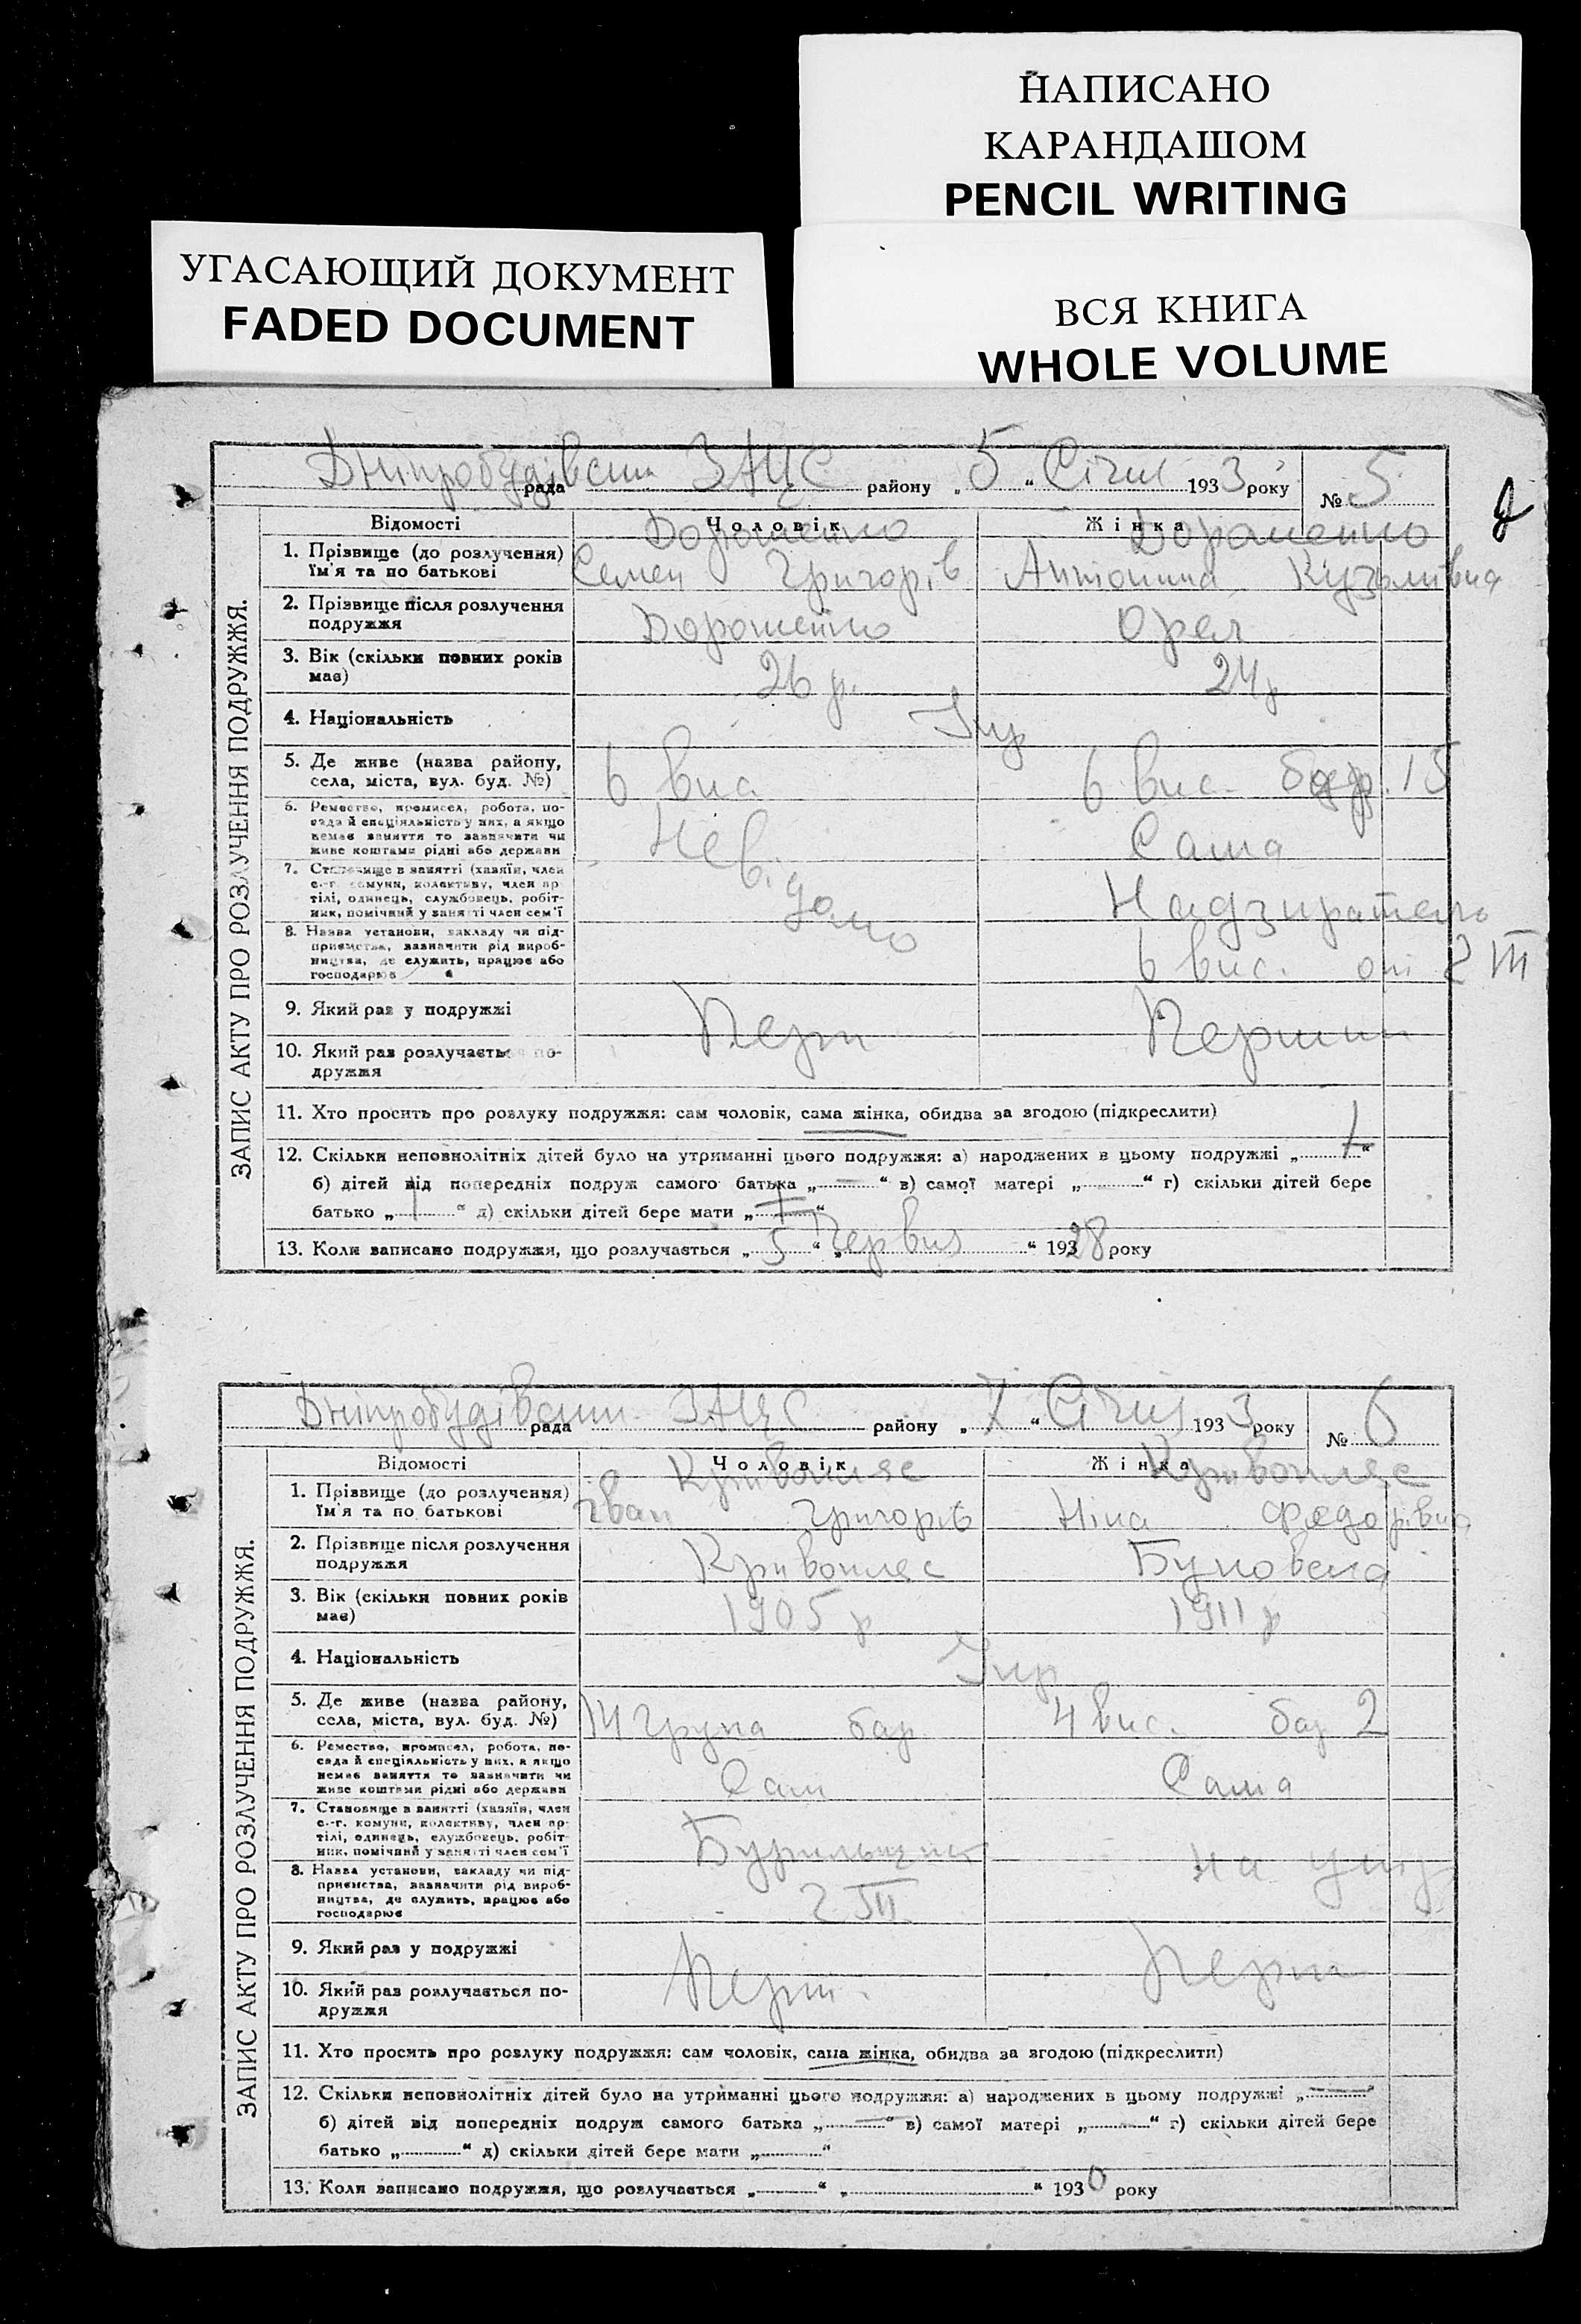 НАПИСАНО
КАРАНДАШОМ
PENCIL WRITING
УГАСАЮЩИЙ ДОКУМЕНТ
FADED DOCUMENT
ВСЯ КНИГА
WHOLE VOLUME
ЗАПИС АКТУ ПРО РОЗЛУЧЕННЯ ПОДРУЖЖЯ.
рада ЗАЦС району „ 5 “ Січня 193 3 року № 5
Відомості Чоловік Жінка
Дорошенко Дорошенко
1. Прізвище (до розлучення) Семен Григорів Антонина Кузьмівна
їм'я та по батькові
2. Прізвище після розлучення Дорошенко Орел
подружжя
3. Вік (скільки повних років 26 р. 24 р
має)
4. Національність Укр
5. Де живе (назва району, 6 вис. 6 вис. бар. 15
села, міста, вул. буд. №)
6. Ремество, промисел, робота, по- Невідомо Сама
сада й спеціяльність у них, а якщо
немає заняття то зазначити чи
живе коштами рідні або держави
7. Становище в занятті (хазяїн, член Надзиратель
с.-г. комуни, колективу, член ар-
тілі, одинець, службовець, робіт-
ник, помічний у занятті член сем'ї
8. Назва установи, закладу чи під- 6 вис.
приємства, зазначити рід вироб-
ництва, де служить, працює або
господарює
9. Який раз у подружжі Перш Перший
10. Який раз розлучається по-
дружжя
11. Хто просить про розлуку подружжя: сам чоловік, сама жінка, обидва за згодою (підкреслити)
12. Скільки неповнолітніх дітей було на утриманні цього подружжя: а) народжених в цьому подружжі „ 1 “
б) дітей від попередніх подруж самого батька „ — “ в) самої матері „ “ г) скільки дітей бере
батько „ “ д) скільки дітей бере мати „ 1 “
13. Коли записано подружжя, що розлучається „ 5 “ „ Червня “ 1928 року
ЗАПИС АКТУ ПРО РОЗЛУЧЕННЯ ПОДРУЖЖЯ.
рада ЗАЦС району „ 7 “ Січня 193 3 року № 6
Відомості Чоловік Жінка
1. Прізвище (до розлучення) Іван Григорів Ніна Федорівна
їм'я та по батькові
2. Прізвище після розлучення
подружжя
3. Вік (скільки повних років 1905 р 1911 р
має)
4. Національність Укр
5. Де живе (назва району, 14 група бар. 4 вис. бар 2
села, міста, вул. буд. №)
6. Ремество, промисел, робота, по- Сам Сама
сада й спеціяльність у них, а якщо
немає заняття то зазначити чи
живе коштами рідні або держави
7. Становище в занятті (хазяїн, член Бурильщик
с.-г. комуни, колективу, член ар-
тілі, одинець, службовець, робіт-
ник, помічний у занятті член сем'ї
8. Назва установи, закладу чи під- на утр
приємства, зазначити рід вироб-
ництва, де служить, працює або
господарює
9. Який раз у подружжі Перш. Перш
10. Який раз розлучається по-
дружжя
11. Хто просить про розлуку подружжя: сам чоловік, сама жінка, обидва за згодою (підкреслити)
12. Скільки неповнолітніх дітей було на утриманні цього подружжя: а) народжених в цьому подружжі „ — “
б) дітей від попередніх подруж самого батька „ — “ в) самої матері „ “ г) скільки дітей бере
батько „ “ д) скільки дітей бере мати „ “
13. Коли записано подружжя, що розлучається „ “ „ “ 1930 року